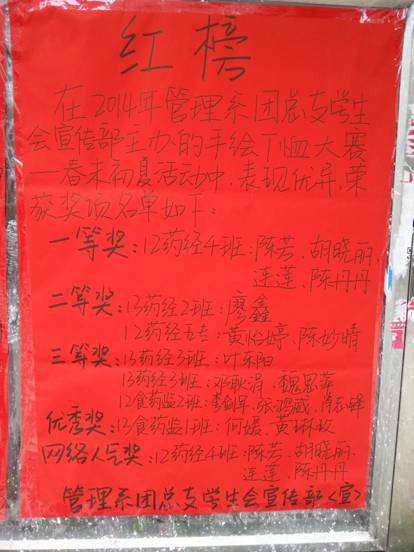 红榜
在2014年管理系团总支学生
会宣传部主办的手绘T恤大赛
—春末初夏活动中,表现优异,荣
获奖项名单如下:
一等奖:12药经4班:陈芳、胡晓丽、
连莲、陈丹丹
二等奖:13药经2班:廖鑫
12药经五专:黄怡婷、陈妙晴
三等奖:13药经3班:叶东阳
13药经3班:邓耿涓、魏思萍
12食药监2班:李剑军、张鸿威、肖
优秀奖:13食药监1班:何媛、黄琳玫
网络人气奖:12药经4班:陈芳、胡晓丽、
连莲、陈丹丹
管理系团总支学生会宣传部<宣>